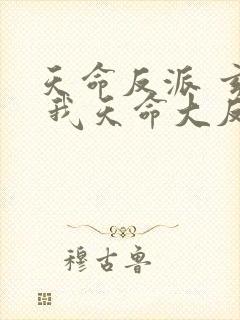 天命反派 玄
我天命大反
穆古鲁